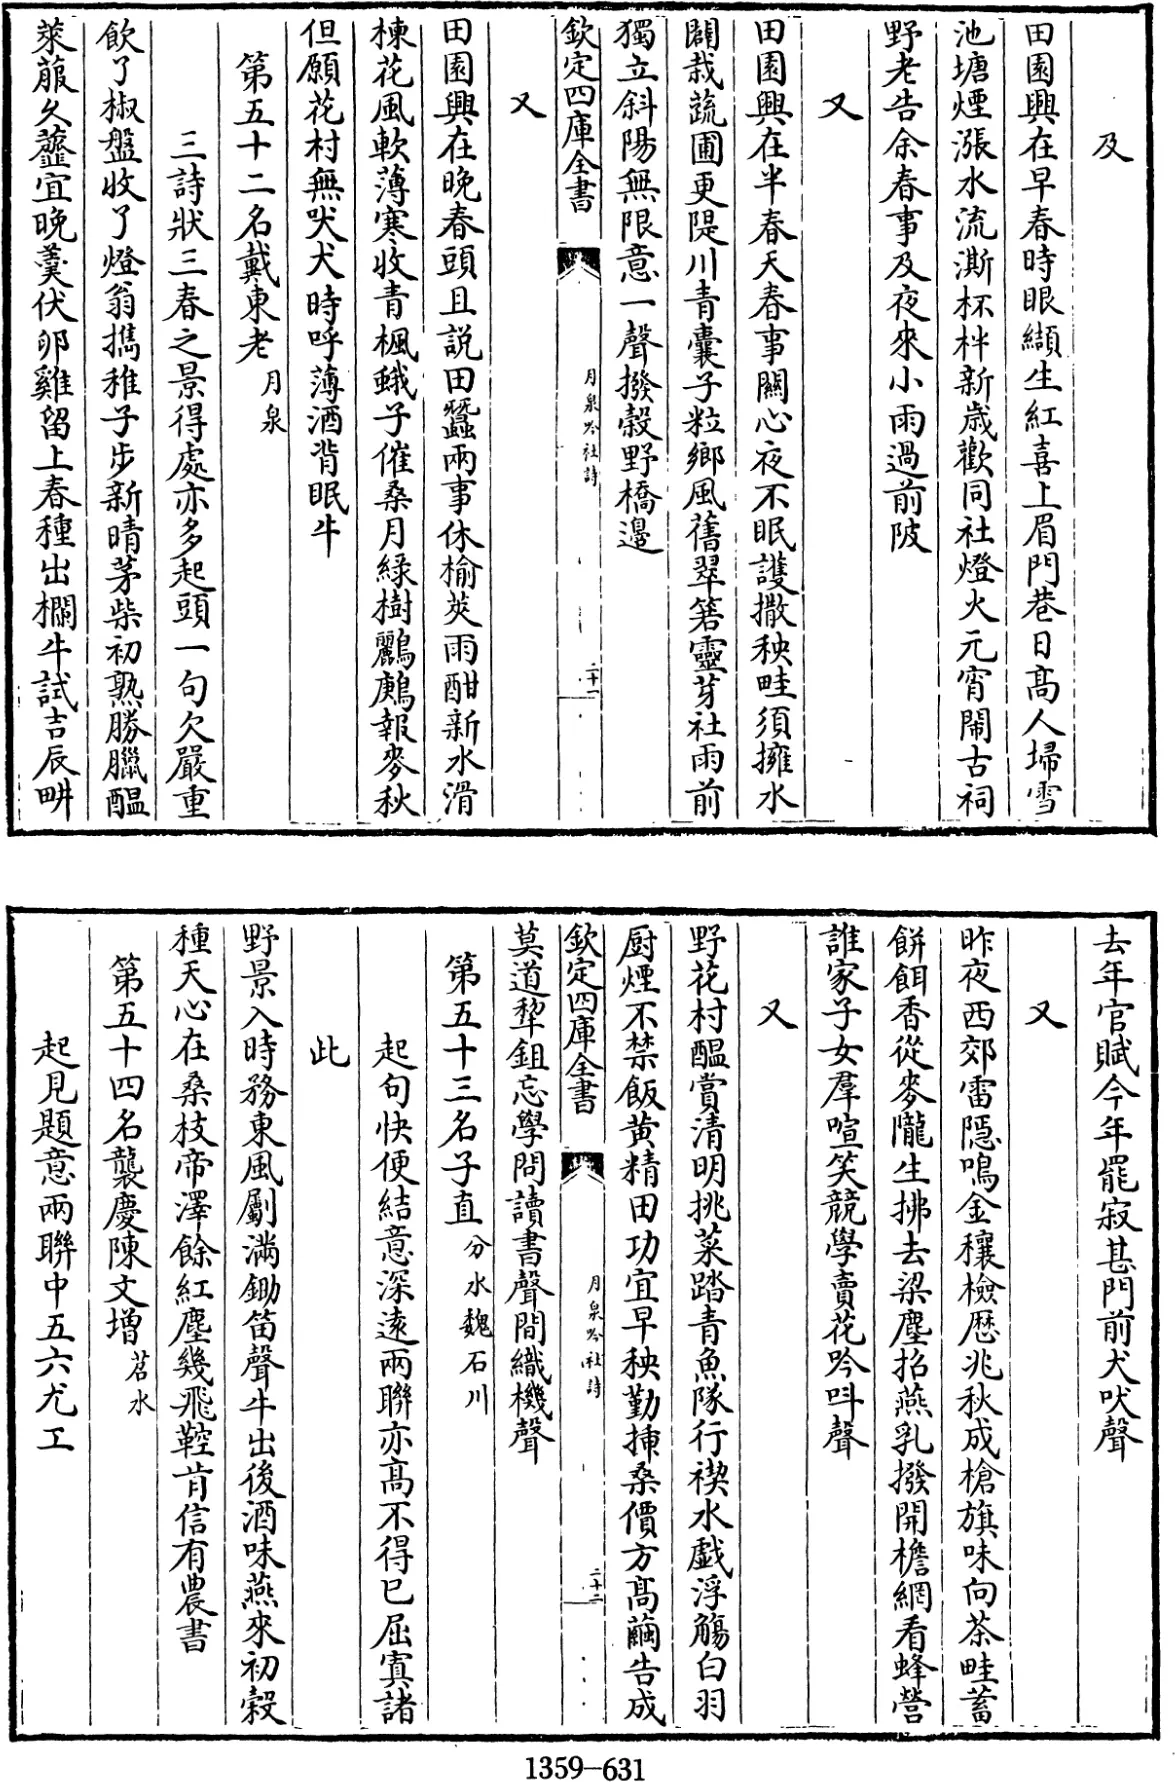 及
田園興在早春時眼纈生紅喜上眉門巷日髙人埽雪
池塘煙漲水流澌杯柈新歳歡同社燈火元宵鬧古祠
野老告余春事及夜來小雨過前陂
又
田園興在半春天春事關心夜不眠護撒秧畦須擁水
闢栽蔬圃更隄川青囊子粒鄉風舊翠箬靈芽社雨前
獨立斜陽無限意一聲撥穀野橋邊
欽定四庫全書
月泉吟社詩
二十一
又
田園興在晩春頭且説田蠶兩事休榆莢雨酣新水滑
楝花風軟薄寒收青楓蛾子催桑月緑樹鸝鶊報麥秋
但願花村無吠犬時呼薄酒背眠牛
第五十二名戴東老 月泉
三詩狀三春之景得處亦多起頭一句欠嚴重
飲了椒盤收了燈翁擕稚子步新晴茅柴初熟勝臘醖
萊菔久虀宜晩羹伏卵雞留上春種出欄牛試吉辰畊
去年官賦今年罷寂甚門前犬吠聲
又
昨夜西郊雷隠鳴金穰檢厯兆秋成槍旗味向茶畦蓄
餅餌香從麥隴生拂去梁塵招燕乳撥開檐網看蜂營
誰家子女羣喧笑競學賣花吟叫聲
又
野花村醖賞清明挑菜踏青魚隊行禊水戯浮觴白羽
厨煙不禁飯黄精田功宜早秧勤揷桑價方髙繭告成
欽定四庫全書
月泉吟社詩
二十二
莫道犂鉏忘學問讀書聲間織機聲
第五十三名子直 分水魏石川
起句快便結意深逺兩聯亦髙不得已屈寘諸
此
野景入時務東風劚滿鋤笛聲牛出後酒味燕來初穀
種天心在桑枝帝澤餘紅塵幾飛鞚肯信有農書
第五十四名龔慶陳文增 苕水
起見題意兩聯中五六尤工
1359-631